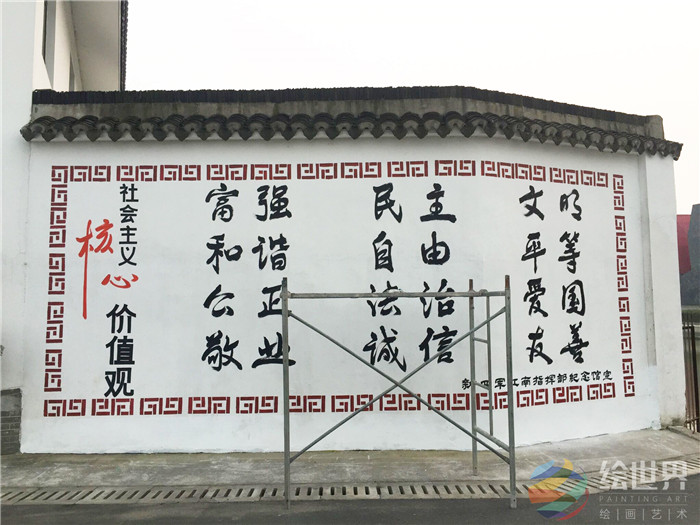 社会主义
核心
价值观
富强 民主 文明
和谐 自由 平等
公正 法治 愛国
敬业 诚信 友善
新四军江南指挥部纪念馆宣
绘世界
PAINTING ART
绘|画|艺|术